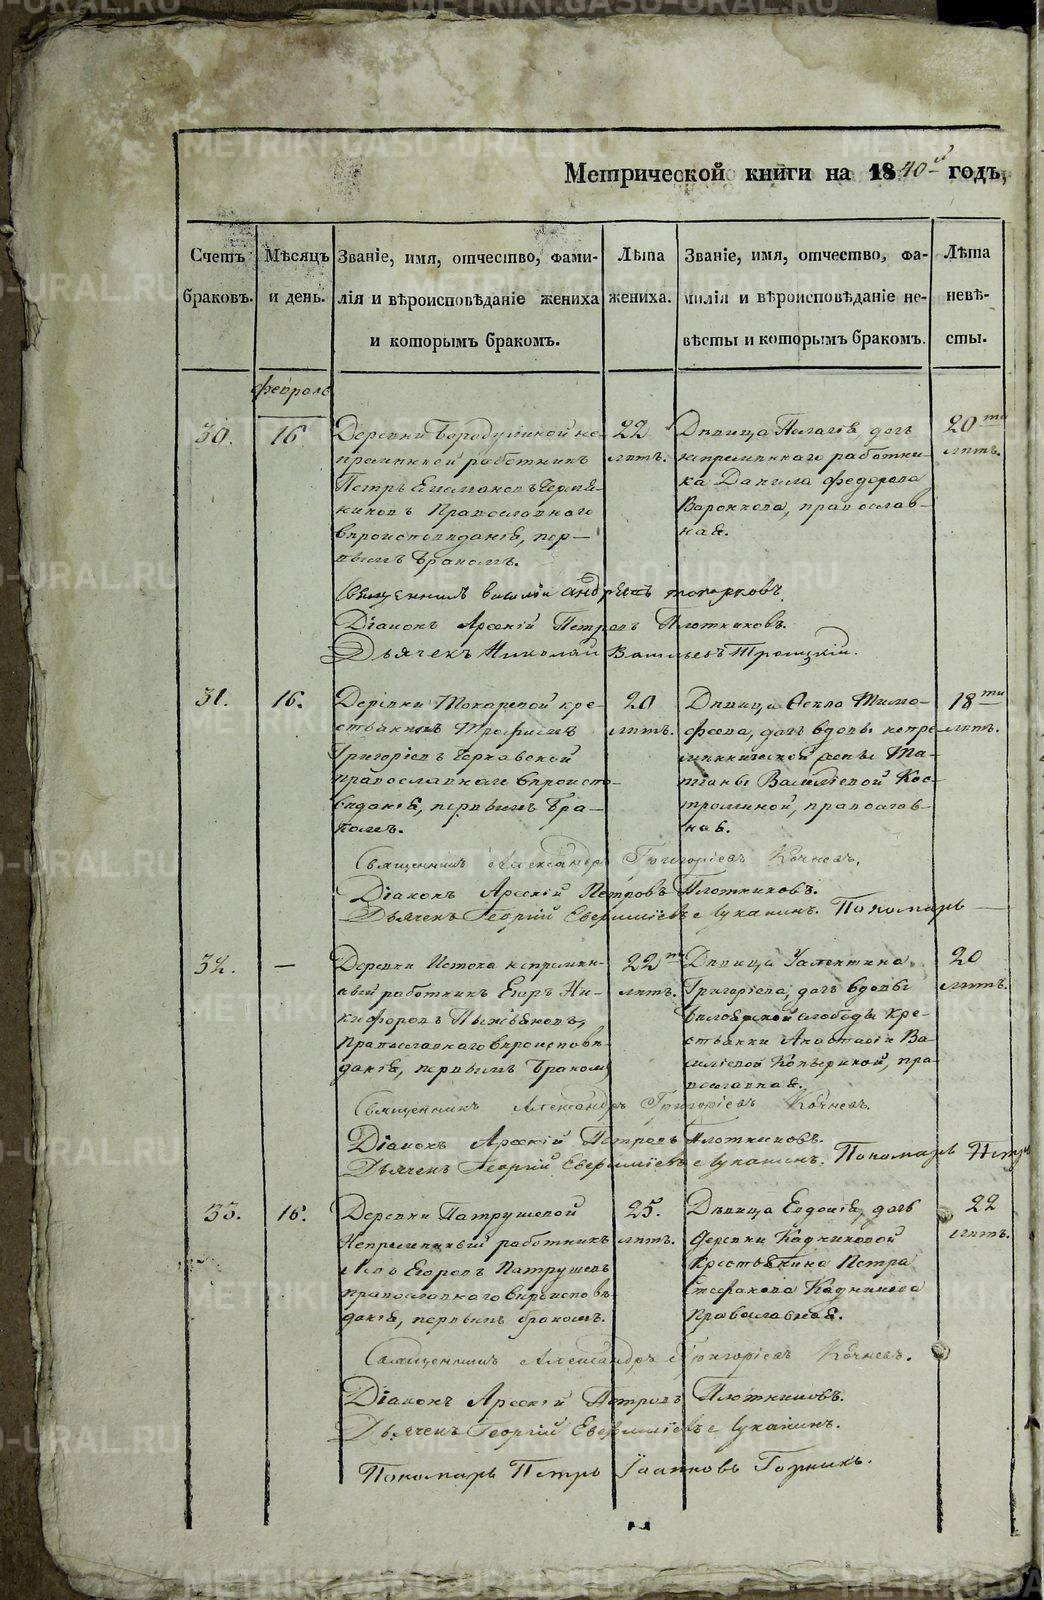 Метрической книги на 1840-й годъ,
Счетъ браковъ.
Мѣсяцъ и день.
Званіе, имя, отчество, фами-
лія и вѣроисповѣданіе жениха
и которымъ бракомъ.
Лѣта
жениха.
Званіе, имя, отчество, фа-
милія и вѣроисповѣданіе не-
вѣсты и которымъ бракомъ.
Лѣта
невѣ-
сты.
Февраль
30.
16
Деревни Бородулиной не-
премѣнной работникъ
Петръ
православнаго
вѣроисповѣданія, пер-
вымъ бракомъ.
22
лѣтъ.
Дѣвица Пелагія дочь
непремѣннаго работни-
ка Данила Федорова
Воронкова, православ-
ная.
20ти
лѣтъ.
Священникъ Василій Андреевъ Топорковъ.
Діаконъ Арсеній Петровъ Плотниковъ.
Дьячекъ Николай Васильевъ Троицкій.
31.
16.
Деревни Токаревой кре-
стьянинъ Трофимъ
Григорьевъ
православнаго вѣроиспо-
вѣданія, первымъ бра-
комъ.
20
лѣтъ.
Дѣвица Фекла Тимо-
феева, дочь вдовы непре-
мѣннической жены Та-
тіаны Васильевой Кос-
троминой, православ-
ная.
18ти
лѣтъ.
Священникъ Александръ Григорьевъ Кочневъ.
Діаконъ Арсеній Петровъ Плотниковъ.
Дьячекъ Георгій Лукапинъ. Пономарь —
32.
—
Деревни Истока непремѣн-
ный работникъ Егоръ Ни-
кифоровъ Пьянковъ,
православнаго вѣроисповѣ-
данія, первымъ бракомъ
22ти
лѣтъ.
Дѣвица Валентина
Григорьева, дочь вдовы
Бѣлоярской слободы кре-
стьянки Анастасіи Ва-
сильевой Копыриной, пра-
вославная.
20
лѣтъ.
Священникъ Александръ Григорьевъ Кочневъ.
Діаконъ Арсеній Петровъ Плотниковъ.
Дьячекъ Георгій Лукапинъ. Пономарь Петръ
33.
16.
Деревни Патрушевой
непремѣнный работникъ
Левъ Егоровъ Патрушевъ
православнаго вѣроисповѣ-
данія, первымъ бракомъ.
25.
лѣтъ.
Дѣвица Евдокія, дочь
деревни Кадниковой
крестьянина Петра
Стефанова Кадникова
православная.
22
лѣтъ.
Священникъ Александръ Григорьевъ Кочневъ.
Діаконъ Арсеній Петровъ Плотниковъ.
Дьячекъ Георгій Лукапинъ.
Пономарь Петръ Іоанновъ Горныхъ.
METRIKI.GASO-URAL.RU